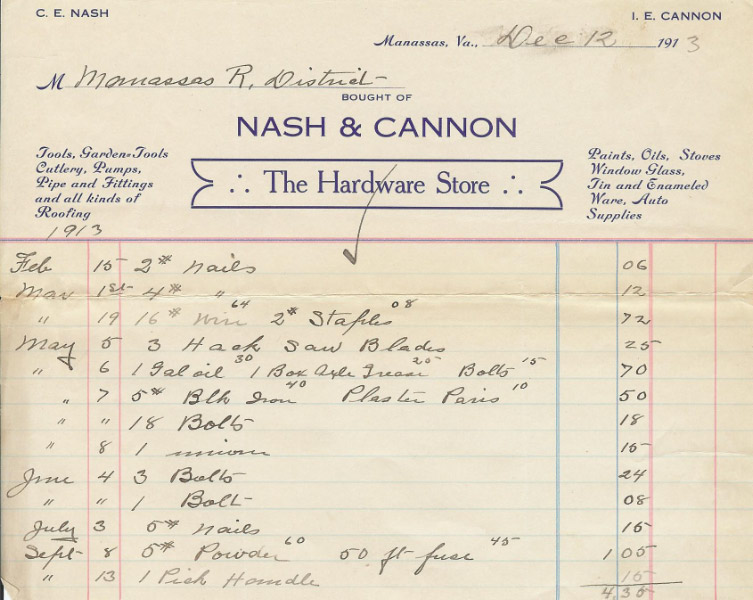 C. E. NASH I. E. CANNON
Manassas, Va., Dec 12 1913
M Manassas R. District
BOUGHT OF
NASH & CANNON
Tools, Garden=Tools
Cutlery, Pumps,
Pipe and Fittings
and all kinds of
Roofing
The Hardware Store
Paints, Oils, Stoves
Window Glass,
Tin and Enameled
Ware, Auto
Supplies
1913
Feb 15 2# nails 06
Mar 1st 4# " 12
" 19 16# Wire 64 2# Staples 08 72
May 5 3 Hack Saw Blades 25
" 6 1 Gal oil 30 1 Box Axle Grease 25 Bolts 15 70
" 7 5# Blk Iron 40 Plaster Paris 10 50
" " 18 Bolts 18
" 8 1 union 15
June 4 3 Bolts 24
" " 1 Bolt 08
July 3 5# nails 15
Sept 8 5# Powder 60 50 ft fuse 45 1 05
" 13 1 Pick Handle 15
4.35